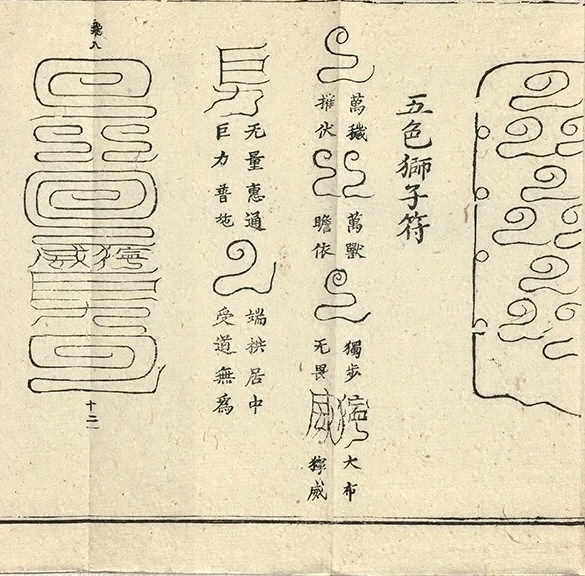 五色獅子符
萬穢
摧伏
萬獸
瞻依
獨步
无畏
獰威
大布
獰威
无量惠通
巨力普施
端拱居中
受道無為
獰威
八
十二